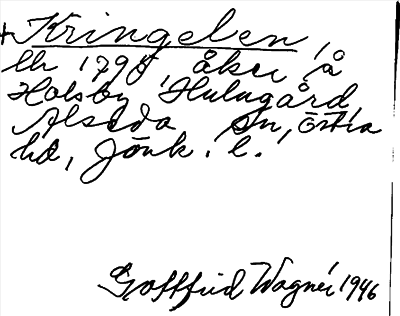 + Kringelen,
lh 1795, åker å
Holsby Hulugård,
Alseda sn, östra
hd, Jönk. l.
Gottfrid Wagnér 1946